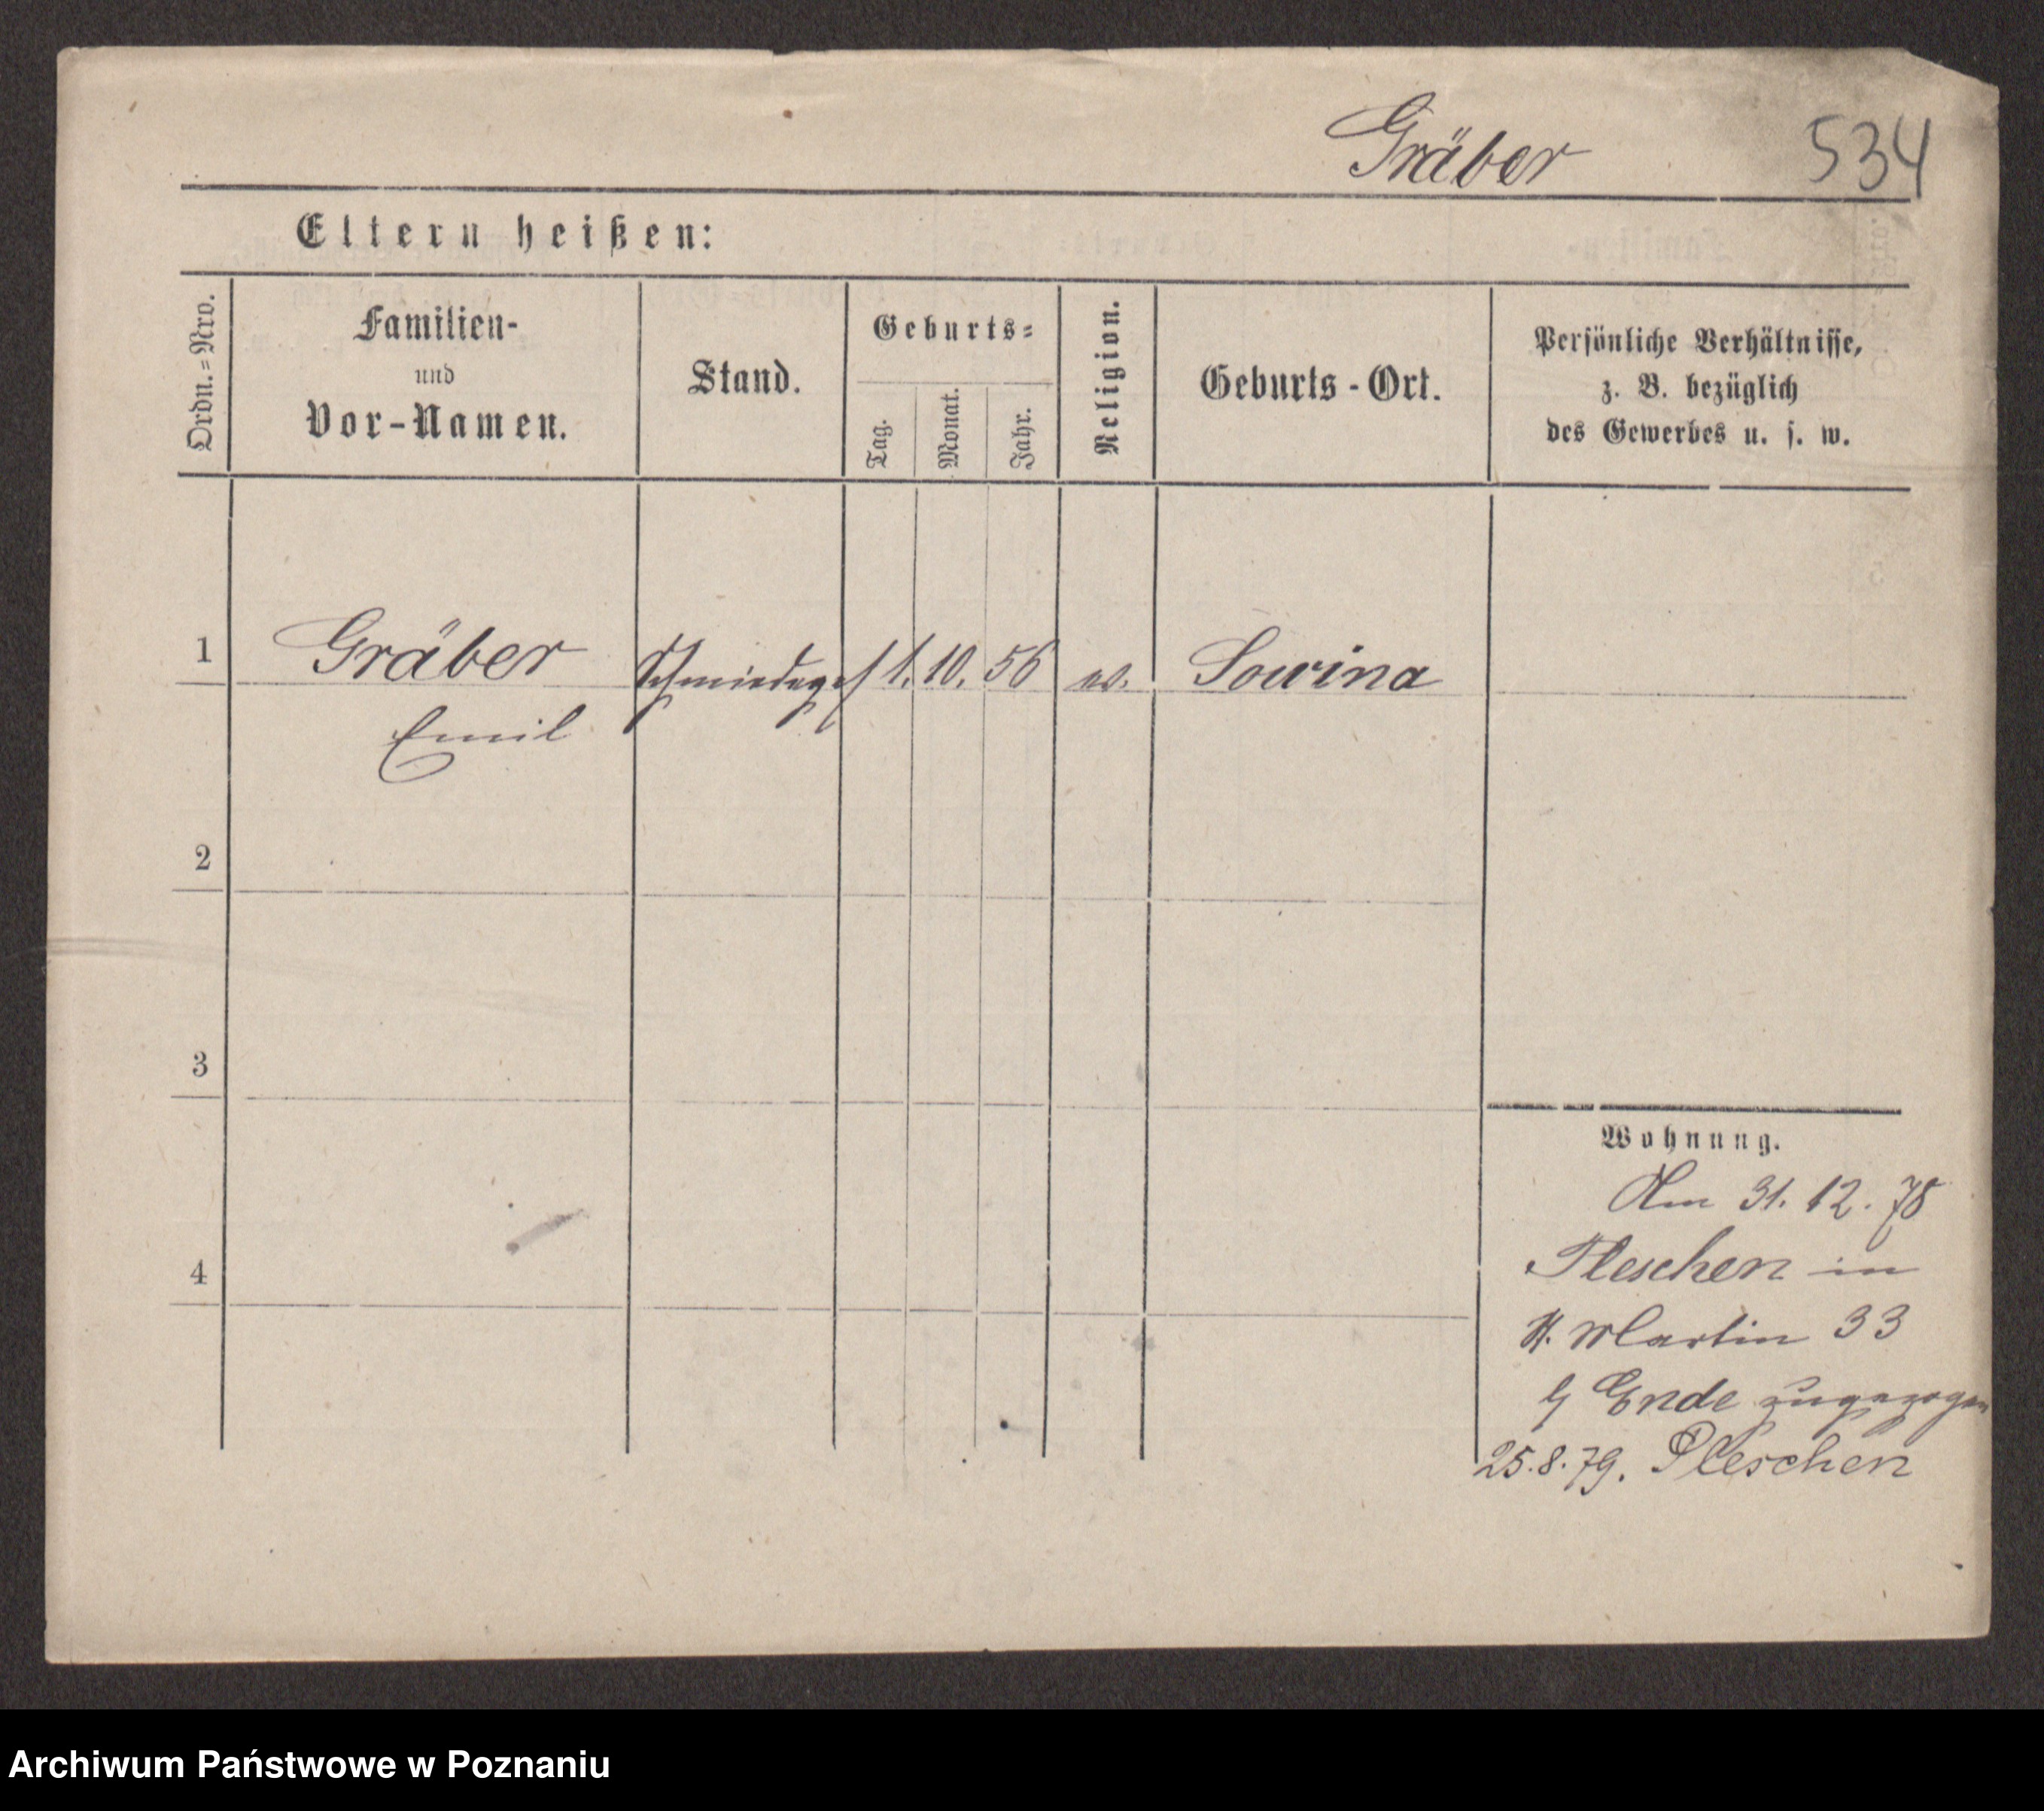 Gräber 534
Eltern heißen:
Ordn.=Nro.
Familien-
und
Vor-Namen.
Stand.
Geburts=
Tag.
Monat.
Jahr.
Religion.
Geburts-Ort.
Persönliche Verhältnisse,
z. B. bezüglich
des Gewerbes u. s. w.
1 Gräber Schmiedeges 1. 10. 56 ev. Sowina
Emil
2
3
4
Wohnung.
Am 31. 12. 78
Pleschen in
St. Martin 33
Ende zugezogen
25.8.79. Pleschen
Archiwum Państwowe w Poznaniu